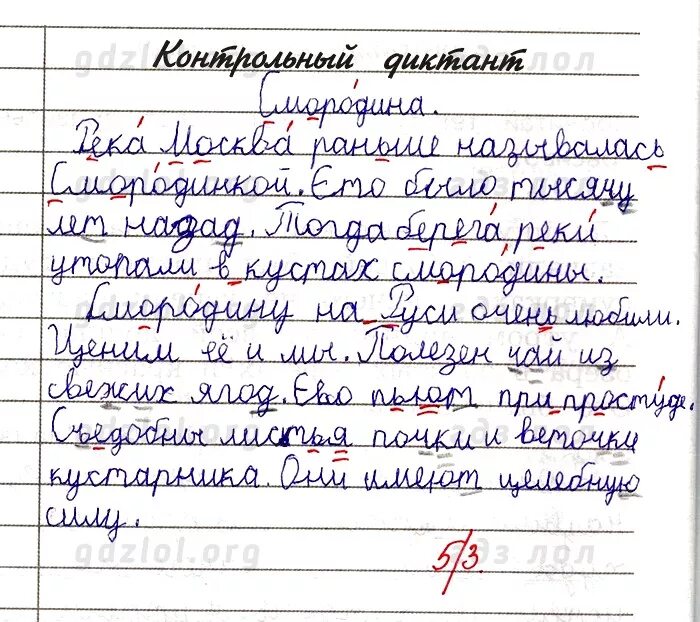 gdzlol.org гдз лол
Контрольный диктант
Смородина.
Река Москва раньше называлась
Смординкой. Ето было тысячу
лет надад. Тогда берега, реки
уторали в кустах смородины.
Смородину на Руси очень любили.
Ценим её и мы. Полезен чай из
свежих ягод. Ево пьют при простуде.
Съедобны листья почки и веточки
кустарника. Они имеют целебную
силу.
5/3
gdzlol.org гдз лол